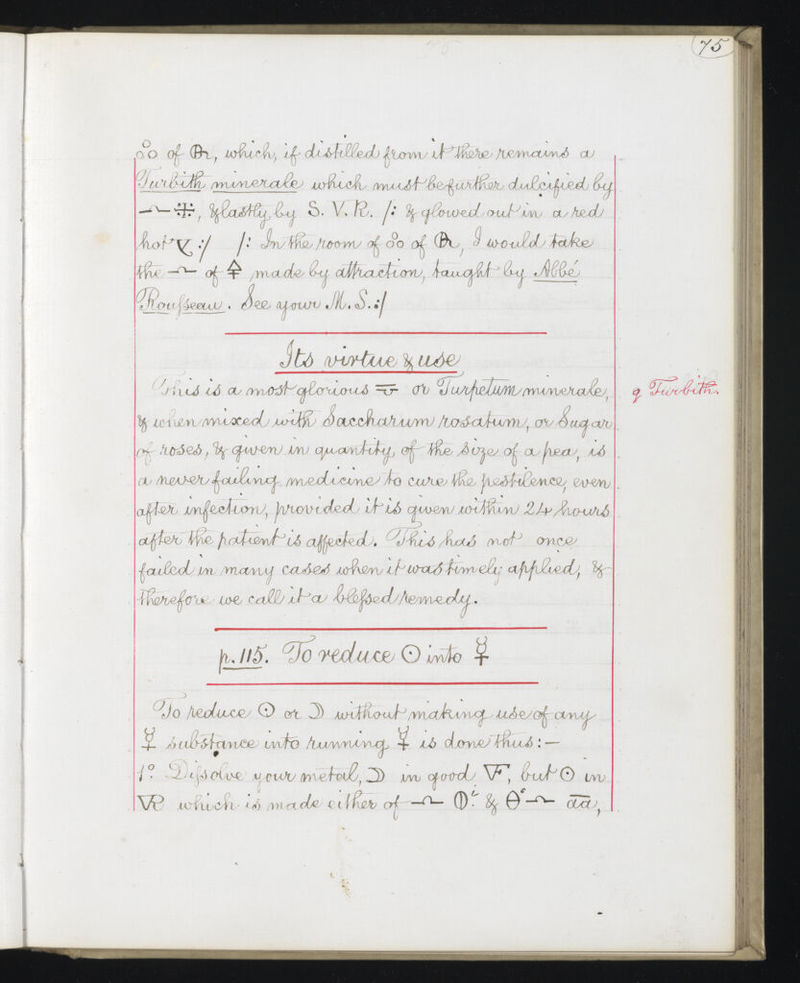 75
of, which, if distilled from it there remains a
Turbith minerale which must be further dulcified by
, & lastly by S. V. R. /: & glowed out in a red
hot :/ /: In the room of of, I would take
the of 🜍 made by attraction, taught by Abbé
Rousseau. See your M.S.:/
Its virtue & use
This is a most glorious or Turpetum minerale,
g Turbith.
& when mixed with Saccharum rosatum, or Sugar
of roses, & given in quantity, of the size of a pea, is
a never failing medicine to cure the pestilence, even
after infection, provided it is given within 24 hours
after the patient is affected. This has not once
failed in many cases when it was timely applied, &
therefore we call it a blessed remedy.
p. 115. To reduce ☉ into ☿
To reduce ☉ or ☽ without making use of any
☿ substance into running ☿ is done thus:—
1º. Dissolve your metal, ☽ in good 🜅, but ☉ in
🜆 which is made either of & aa,